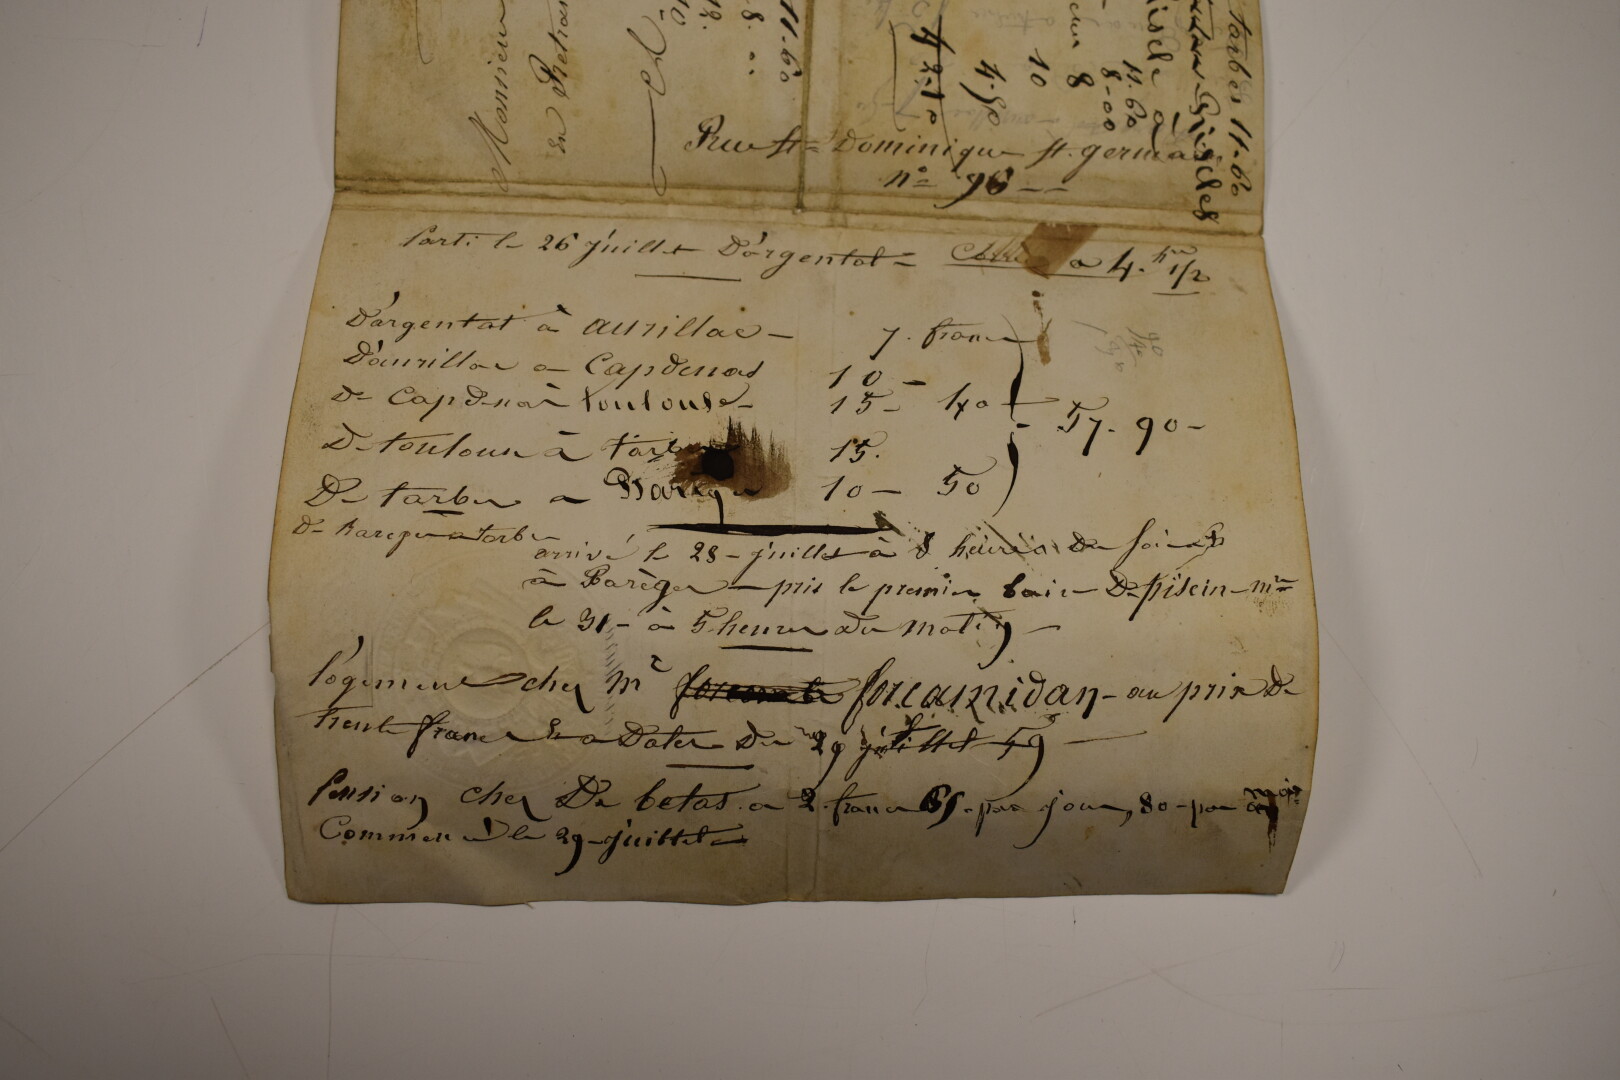 Monsieur
en Retrai
11.60
8..
12.
10.
4.50
10
8
42.10
Tarbes 11.60
Gisclés
11.60
8-00
Rue St= Dominique St. germai
n° 96 --
Parti le 26 juillet D'argental = a 4. hre 1/2
D'argentat à aurillac - 7. franc
D'aurillac a Capdenas 10 -
De Capdenas à toulouse - 15 - 40 - 57-90-
De toulouse à tarbe 15.
De tarbes a Barèges 10 - 50
De Bareges a tarbe
arrivé le 28 - juillet à 8 heures Du soir
à Barèges - pris le premier bain De piscin - mre
le 31 - à 5 heures du matin -
logement chez Mr forcamidan - au prix De
trente francs a Dater Du 29 juillet 59 -
Pension chez De betas a 2. franc 65 - par jour, 80 - par
Commencé le 29 - juillet -